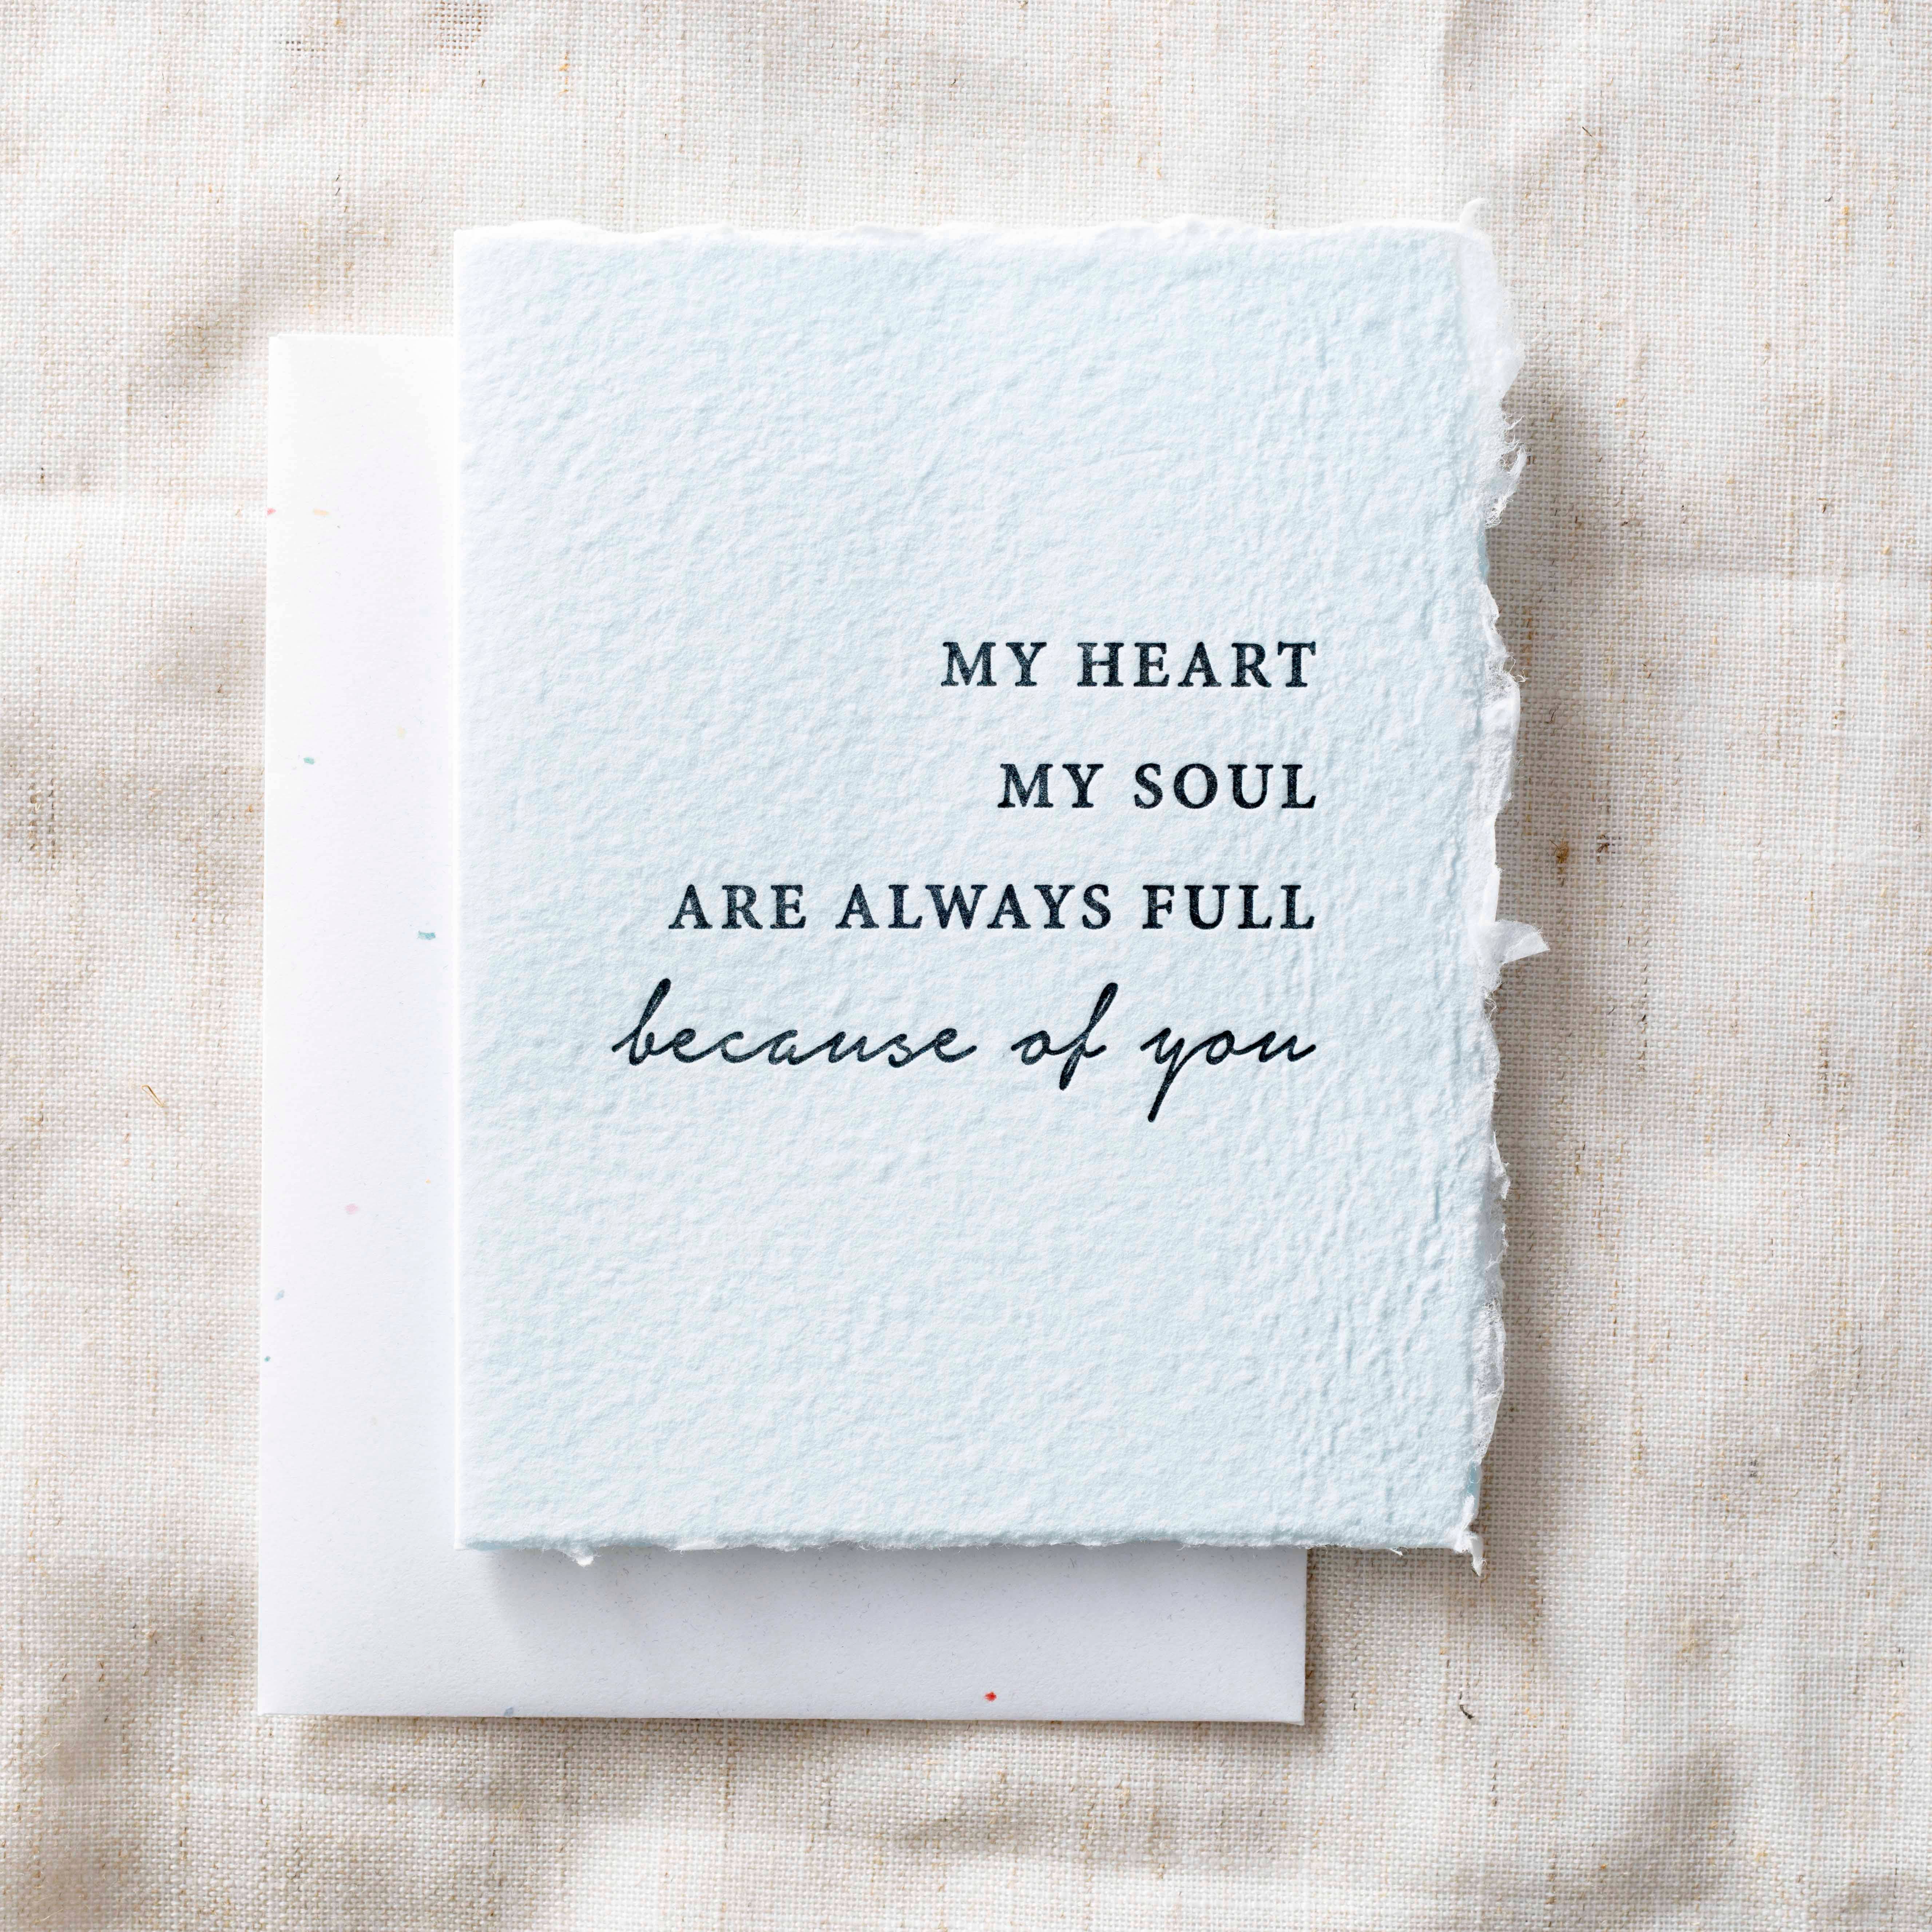 MY HEART
MY SOUL
ARE ALWAYS FULL
because of you